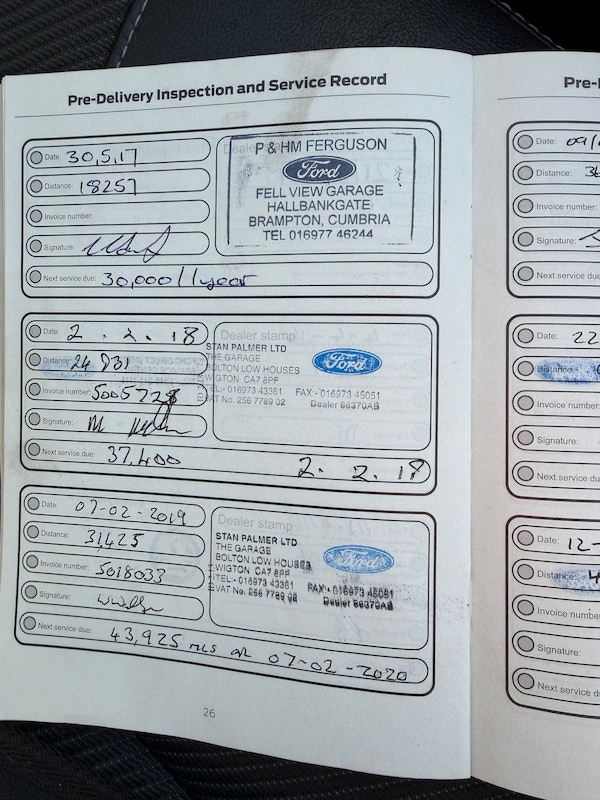 Pre-Delivery Inspection and Service Record
Date: 30,5,17
Distance: 18257
Invoice number:
Signature:
Next service due: 30,000 / 1year
P & HM FERGUSON
Ford
FELL VIEW GARAGE
HALLBANKGATE
BRAMPTON, CUMBRIA
TEL 016977 46244
Date: 2. 2. 18
Distance: 24 831
Invoice number: 5005728
Signature:
Next service due: 37,400 2. 2. 19
Dealer stamp
STAN PALMER LTD
THE GARAGE
BOLTON LOW HOUSES
WIGTON CA7 8PF
TEL:- 016973 43361 FAX:- 016973 45051
VAT No. 256 7789 02 Dealer 66370AB
Ford
Date: 07-02-2019
Distance: 31,425
Invoice number: 5018033
Signature:
Next service due: 43,925 MLS OR 07-02-2020
Dealer stamp
STAN PALMER LTD
THE GARAGE
BOLTON LOW HOUSES
WIGTON CA7 8PF
TEL:- 016973 43361 FAX:- 016973 45051
VAT No. 256 7789 02 Dealer 66370AB
Ford
26
Pre-
Date: 09/
Distance: 36
Invoice number:
Signature:
Next service due
Date: 22
Distance:
Invoice number:
Signature:
Next service du
Date: 12-
Distance: 4
Invoice number
Signature:
Next service d